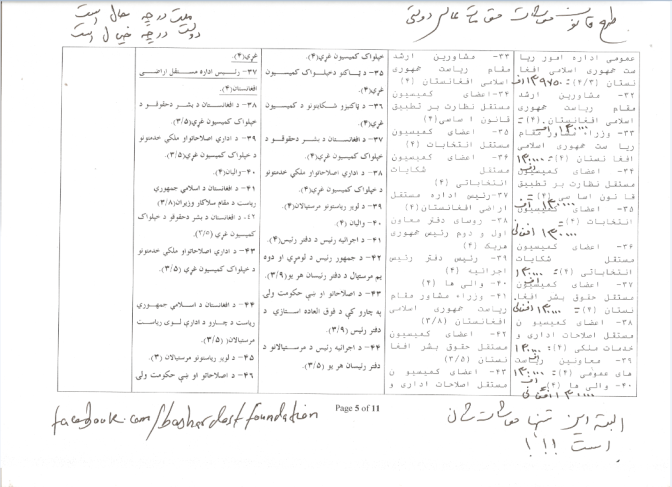 طرح قانون معاشات مقامات عالی دولتی
ملت در چه حال است
دولت در چه خیال است
عمومی اداره امور ریا
ست جمهوری اسلامی افغا
نستان (۴/۳) = ۱۳۹۷۵۰ اف
۳۲- مشاورین ارشد
مقام ریاست جمهوری
اسلامی افغانستان. (۴) =
۳۳- وزراء مشاور مقام
ریا ست جمهوری اسلامی
افغا نستان (۴) =
۳۴- اعضای کمیسیون
مستقل نظارت بر تطبیق
قا نون اسا سی (۴) =
۳۵- اعضای کمیسیون
انتخابات (۴) =
۳۶- اعضای کمیسیون
مستقل شکایات
انتخاباتی (۴) =
۳۷- اعضای کمیسیون
مستقل حقوق بشر افغا
نستان (۴) =
۳۸- اعضای کمیسیو ن
مستقل اصلاحات اداری و
خدمات ملکی (۴) =
۳۹- معاونین ریاست
های عمومی (۴) =
۴۰- والی ها (۴) =
۳۳- مشاورین ارشد
مقام ریاست جمهوری
اسلامی افغانستان (۴)
۳۴- اعضای کمیسیون
مستقل نظارت بر تطبیق
قانون ا ساسی (۴)
۳۵- اعضای کمیسیون
مستقل انتخابات (۴)
۳۶- اعضای کمیسیون
مستقل شکایات
انتخاباتی (۴)
۳۷- رئیس اداره مستقل
اراضی افغانستان (۴)
۳۸- روسای دفتر معاون
اول و دوم رئیس جمهوری
هریک (۴)
۳۹- رئیس دفتر رئیس
اجرائیه (۴)
۴۰- والی ها (۴)
۴۱- وزراء مشاور مقام
ریاست جمهوری اسلامی
افغانستان (۳/۸)
۴۲- اعضای کمیسیون
مستقل حقوق بشر افغا
نستان (۳/۵)
۴۳- اعضای کمیسیو ن
مستقل اصلاحات اداری و
خپلواک کمیسیون غړي (۴).
۳۵- د ټاکنو دخپلواک کمیسیون
غړي (۴).
۳۶- د ټاکنیزو شکایتونو د کمیسیون
غړي (۴).
۳۷- د افغانستان د بشر دحقوقو د
خپلواک کمیسیون غړي (۴).
۳۸- د اداري اصلاحاتواو ملکي خدمتونو
د خپلواک کمیسیون غړي (۴).
۳۹- د لویو ریاستونو مرستیالان (۴).
۴۰- والیان (۴).
۴۱- د اجرائیه رئیس د دفتر رئیس (۴).
۴۲- د جمهور رئیس د لومړي او دوه
یم مرستیال د دفتر رئیسان هر یو (۳/۹).
۴۳- د اصلاحاتو او ښې حکومت ولۍ
په چارو کې د فوق العاده استازي د
دفتر رئیس (۳/۹)
۴۴- د اجرائیه رئیس د مرستیالانو د
دفتر رئیسان هر یو (۳/۵).
غړي (۴).
۳۷- رئیس اداره مستقل اراضی
افغانستان (۴)
۳۸- د افغانستان د بشر دحقوقو د
خپلواک کمیسیون غړي (۳/۵)
۳۹- د اداري اصلاحاتواو ملکي خدمتونو
د خپلواک کمیسیون غړي (۳/۵)
۴۰- والیان (۴).
۴۱- د افغانستان د اسلامي جمهوري
ریاست د مقام سلاکار وزیران (۳/۸)
۴۲- د افغانستان د بشر دحقوقو د خپلواک
کمیسیون غړي (۳/۵)
۴۳- د اداري اصلاحاتواو ملکي خدمتونو
د خپلواک کمیسیون غړي (۳/۵).
۴۴- د افغانستان د اسلامي جمهوري
ریاست د چارو د اداري لوی ریاست
مرستیالان (۳/۵)
۴۵- د لویو ریاستونو مرستیالان (۳)
۴۶- د اصلاحاتو او ښې حکومت ولۍ
Page 5 of 11
facebook.com/bashardostfoundation
البته این تنها معاشات شان
است !!!